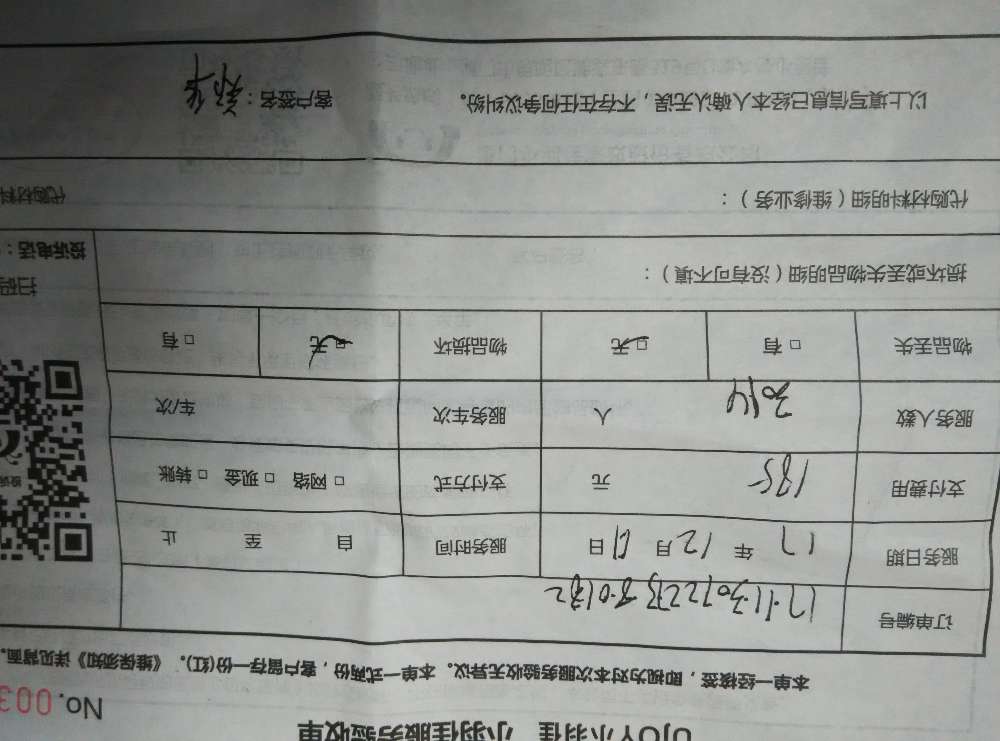 UJOY小羽佳 小羽佳服务验收单
No.003
本单一经核签，即视为对本次服务验收无异议。本单一式两份，客户留存一份(红)。《维保须知》详见背面。
订单编号
服务日期 17 年 12 月 日 服务时间 自 至 止
支付费用 185 元 支付方式 □ 网络 □ 现金 □ 转账
服务人数 人 服务车次 车/次
物品丢失 □ 有 □ 无 物品损坏 □ 无 □ 有
损坏或丢失物品明细（没有可不填）：
扫码
投诉电话：
代购材料明细（维修业务）： 代购材料
以上填写信息已经本人确认无误，不存在任何争议纠纷。 客户签名：